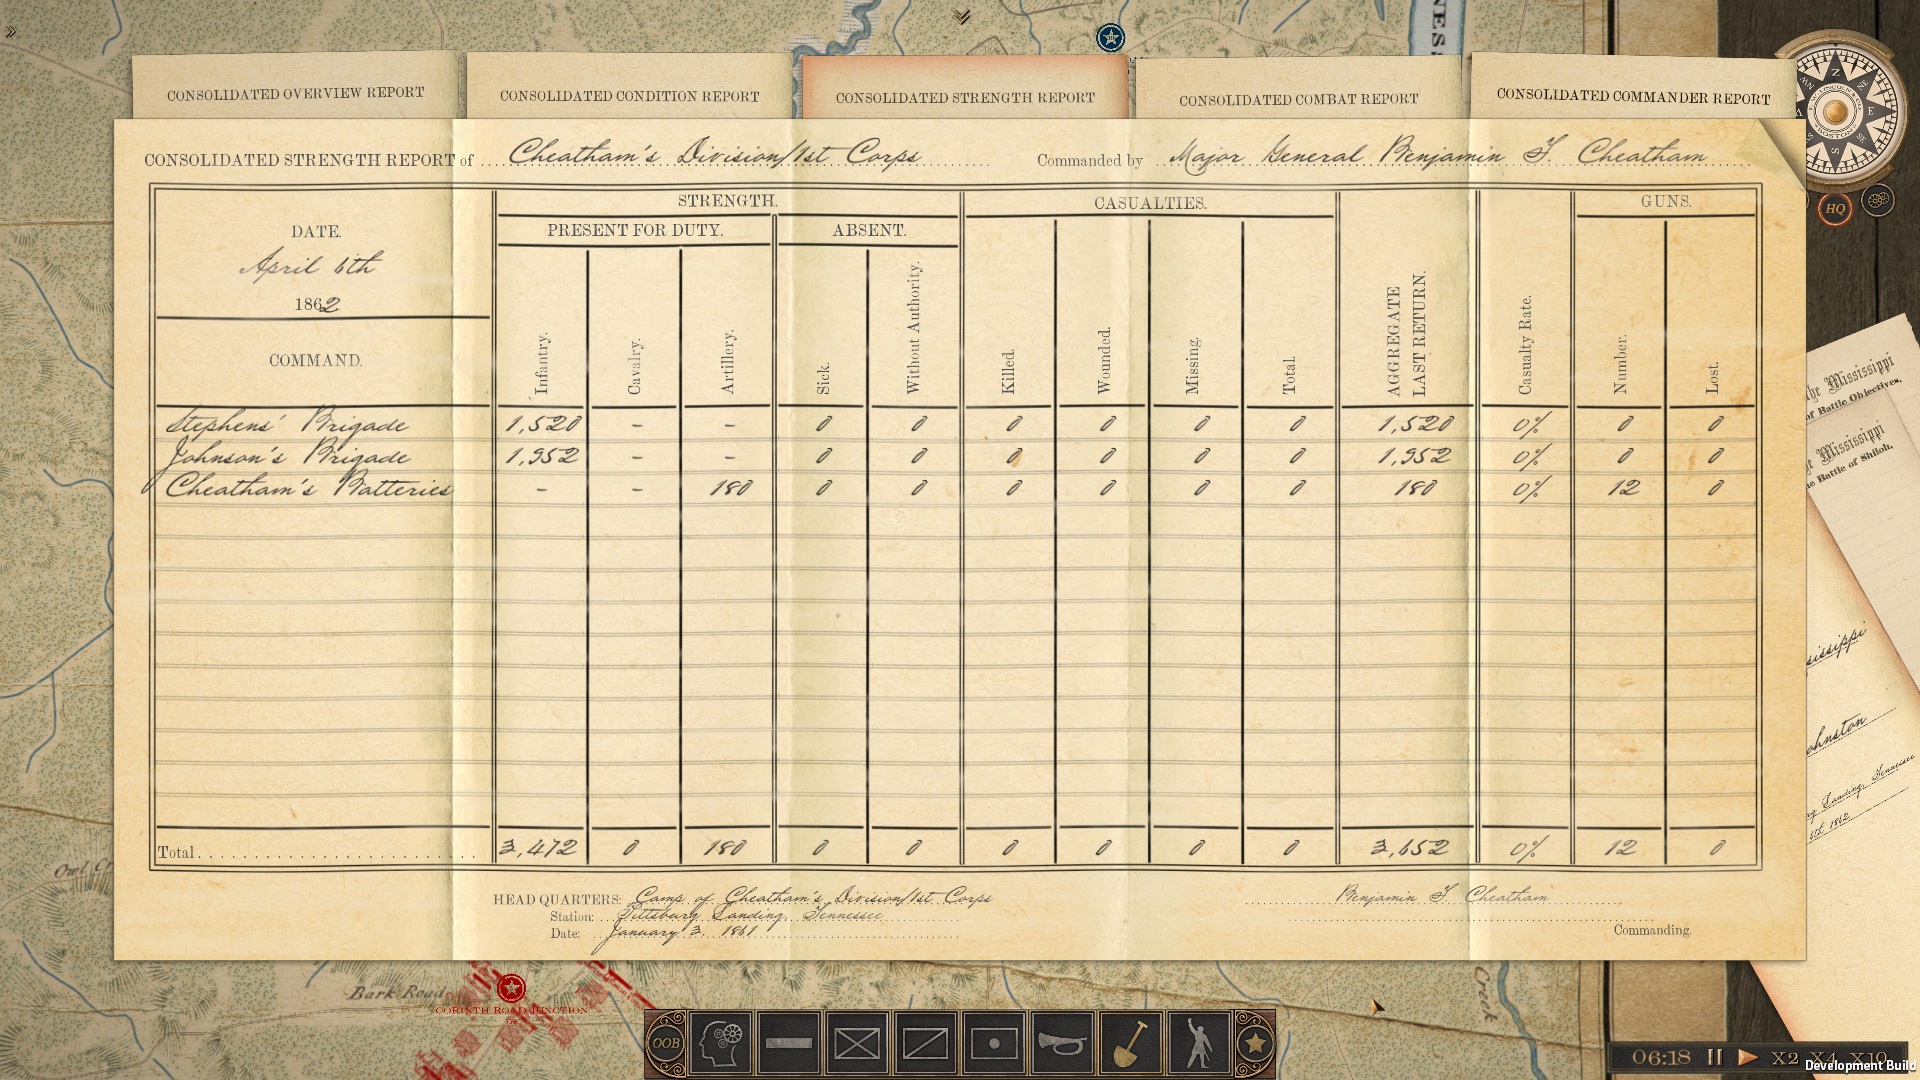 CONSOLIDATED OVERVIEW REPORT
CONSOLIDATED CONDITION REPORT
CONSOLIDATED STRENGTH REPORT
CONSOLIDATED COMBAT REPORT
CONSOLIDATED COMMANDER REPORT
CONSOLIDATED STRENGTH REPORT of Cheatham's Division/1st Corps Commanded by Major General Benjamin F. Cheatham
STRENGTH. CASUALTIES. GUNS.
DATE. PRESENT FOR DUTY. ABSENT.
April 6th
1862
COMMAND. Infantry. Cavalry. Artillery. Sick. Without Authority. Killed. Wounded. Missing. Total. AGGREGATE LAST RETURN. Casualty Rate. Number. Lost.
Stephens' Brigade 1,520 - - 0 0 0 0 0 0 1,520 0% 0 0
Johnson's Brigade 1,952 - - 0 0 0 0 0 0 1,952 0% 0 0
Cheatham's Batteries - - 180 0 0 0 0 0 0 180 0% 12 0
Total 3,472 0 180 0 0 0 0 0 0 3,652 0% 12 0
HEAD QUARTERS: Camp of Cheatham's Division/1st Corps
Station: Pittsburg Landing, Tennessee
Date: January 3, 1861
Benjamin F. Cheatham
Commanding.
HQ
the Mississippi
of Battle Objectives,
Mississippi
Battle of Shiloh,
Landing, Tennessee
1862
Bark Road
CORINTH ROAD JUNCTION
Creek
OOB
06:18 X2 X4 X10
Development Build